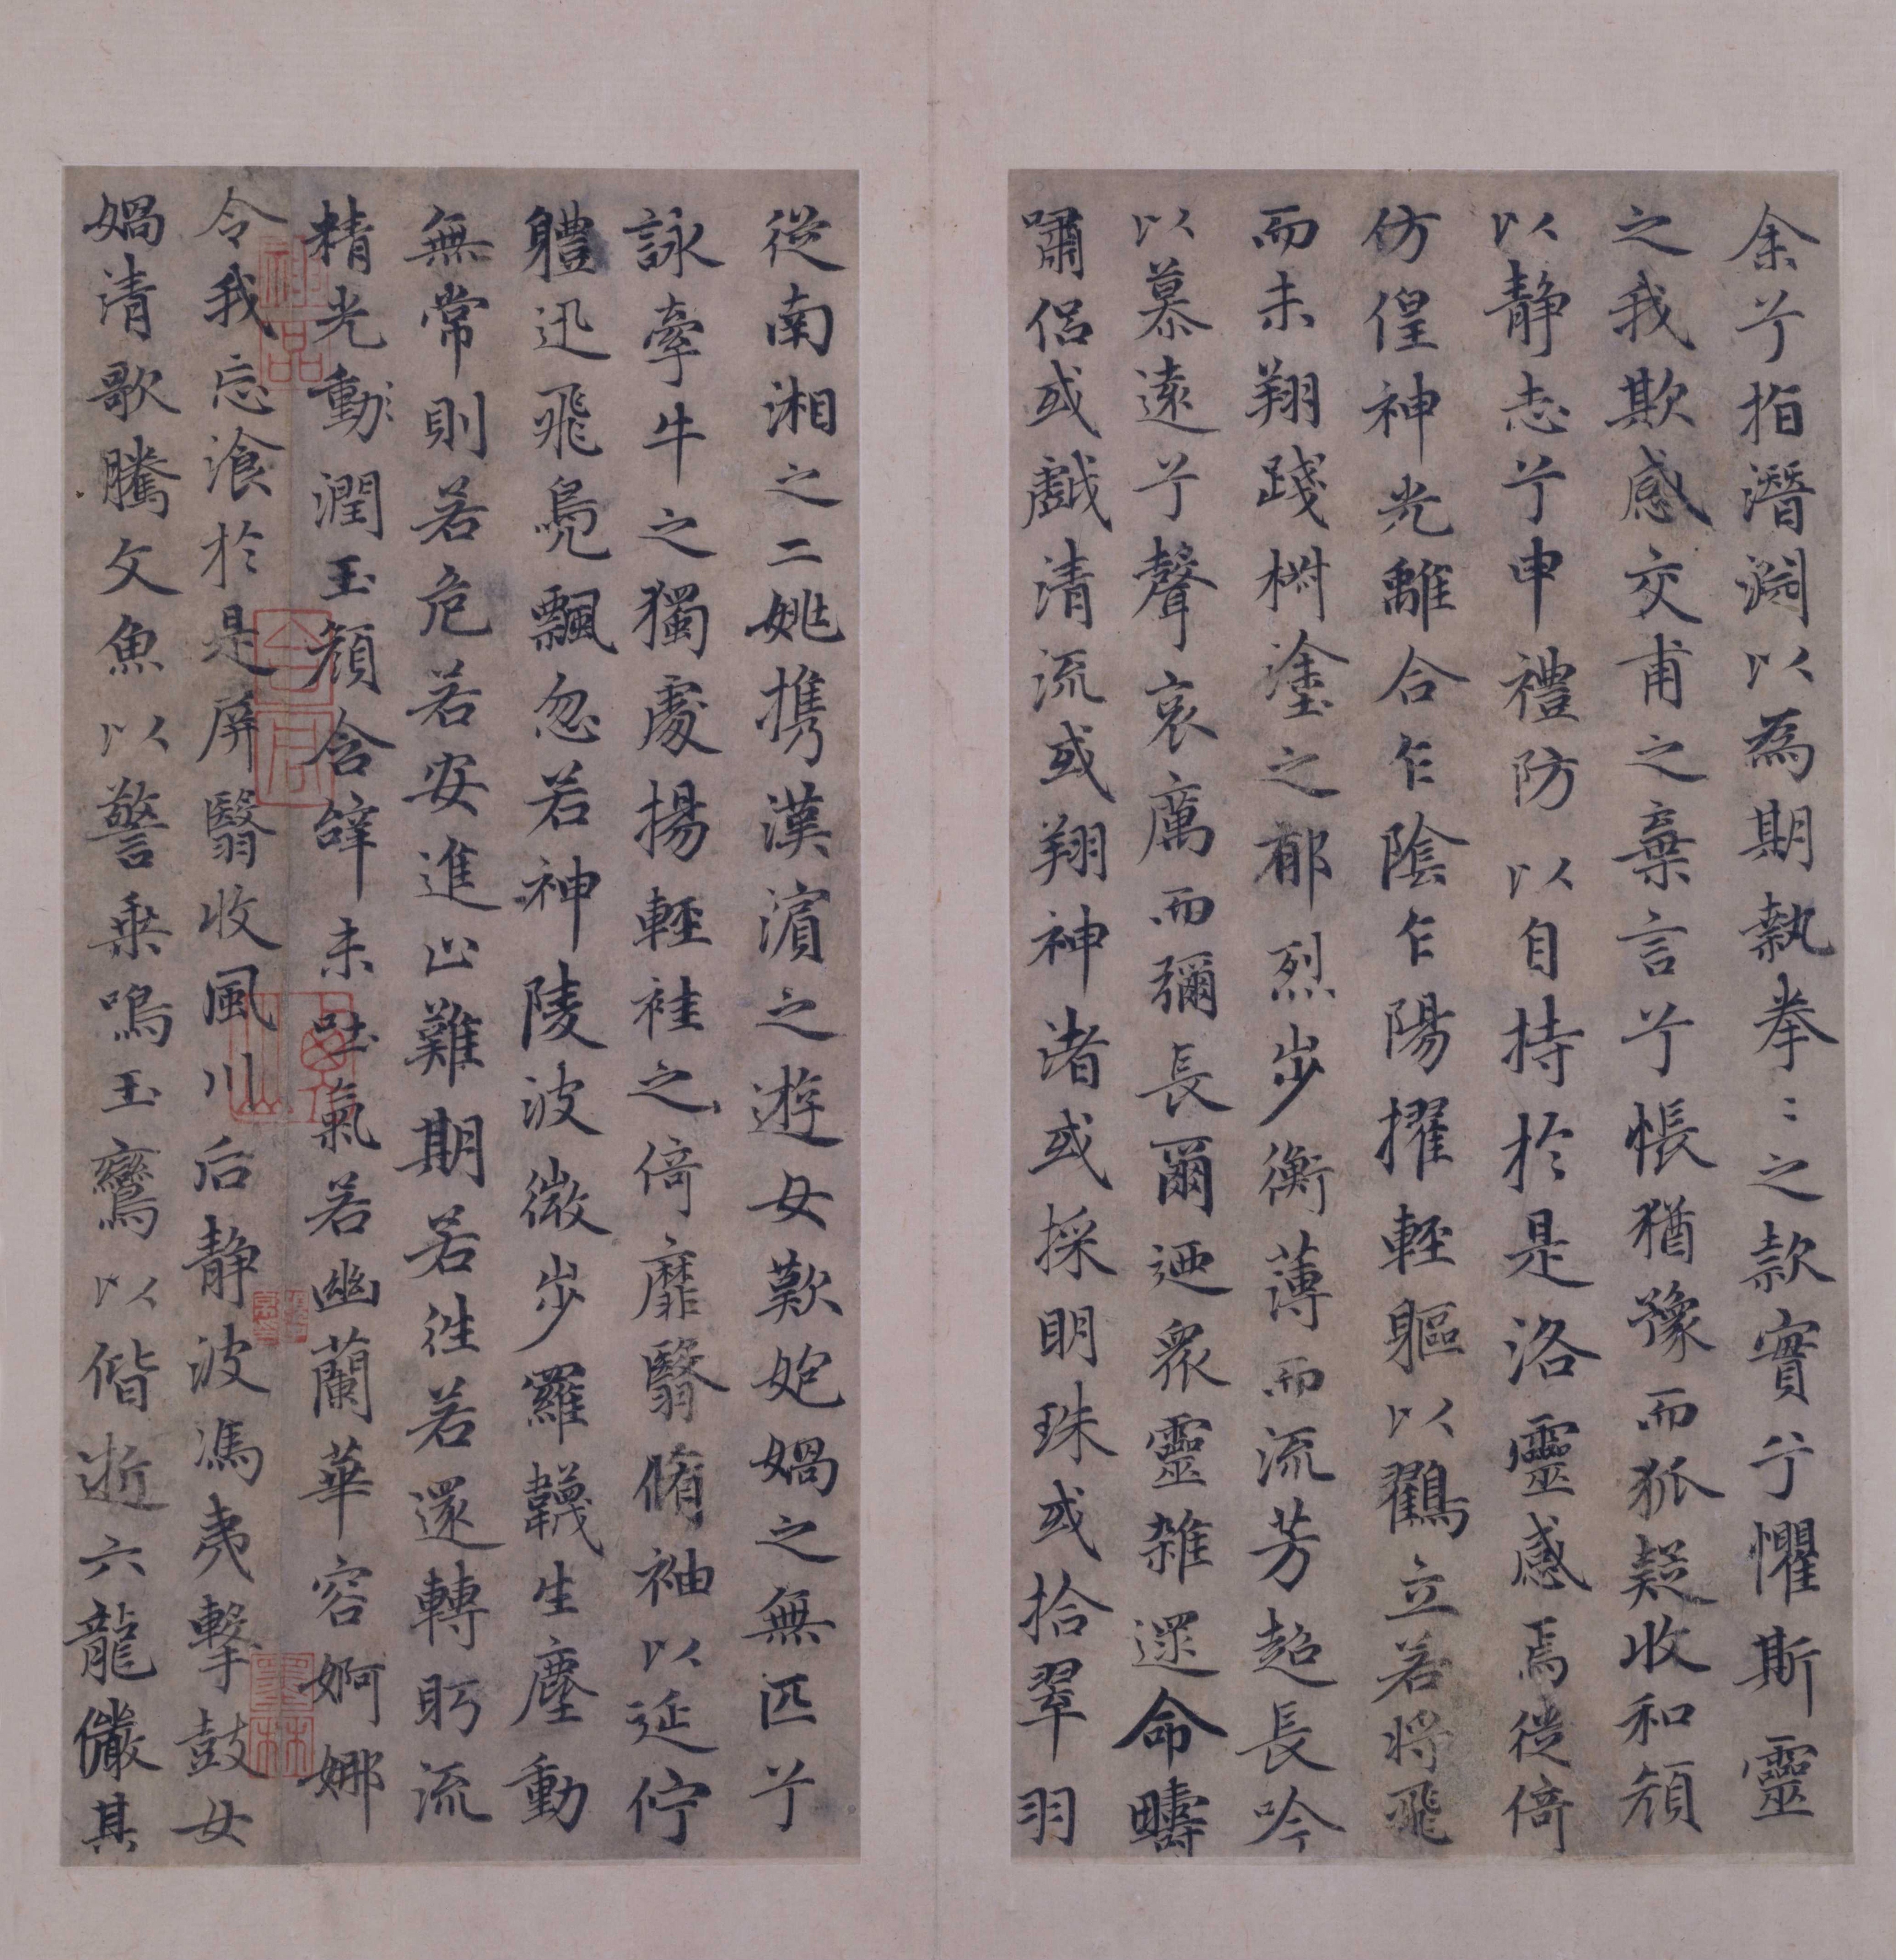 余兮指潛淵以為期執拳〻之款實兮懼斯靈
之我欺感交甫之棄言兮悵猶豫而狐疑收和顏
以静志兮申禮防以自持於是洛靈感焉徙倚
仿偟神光離合乍陰乍陽擢輕軀以鶴立若將飛
而未翔踐椒塗之郁烈步衡薄而流芳超長吟
以慕遠兮聲哀厲而彌長爾迺衆靈雜遝命疇
嘯侣或戲清流或翔神渚或採明珠或拾翠羽
從南湘之二姚攜漢濱之遊女歎匏媧之無匹兮
詠牽牛之獨處揚輕袿之倚靡翳脩袖以延佇
體迅飛鳧飄忽若神陵波微步羅韈生塵動
無常則若危若安進止難期若往若還轉眄流
精光動〻潤玉顏含辭未吐氣若幽蘭華容婀娜
令我忘飡於是屏翳收風川后静波馮夷擊鼓女
媧清歌騰文魚以警乗鳴玉鸞以偕逝六龍儼其